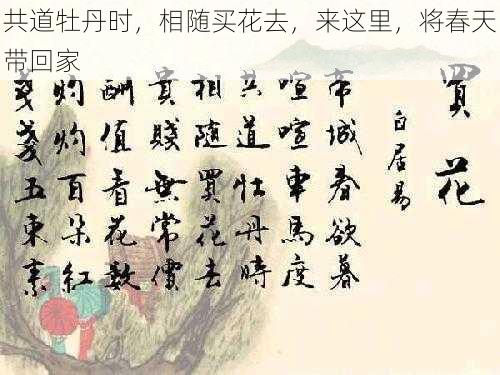 共道牡丹时，相随买花去，来这里，将春天
带回家
買花
白居易
帝城春欲暮
喧喧車馬度
共道牡丹時
相隨買花去
貴賤無常價
酬值看花數
灼灼百朵紅
戔戔五束素